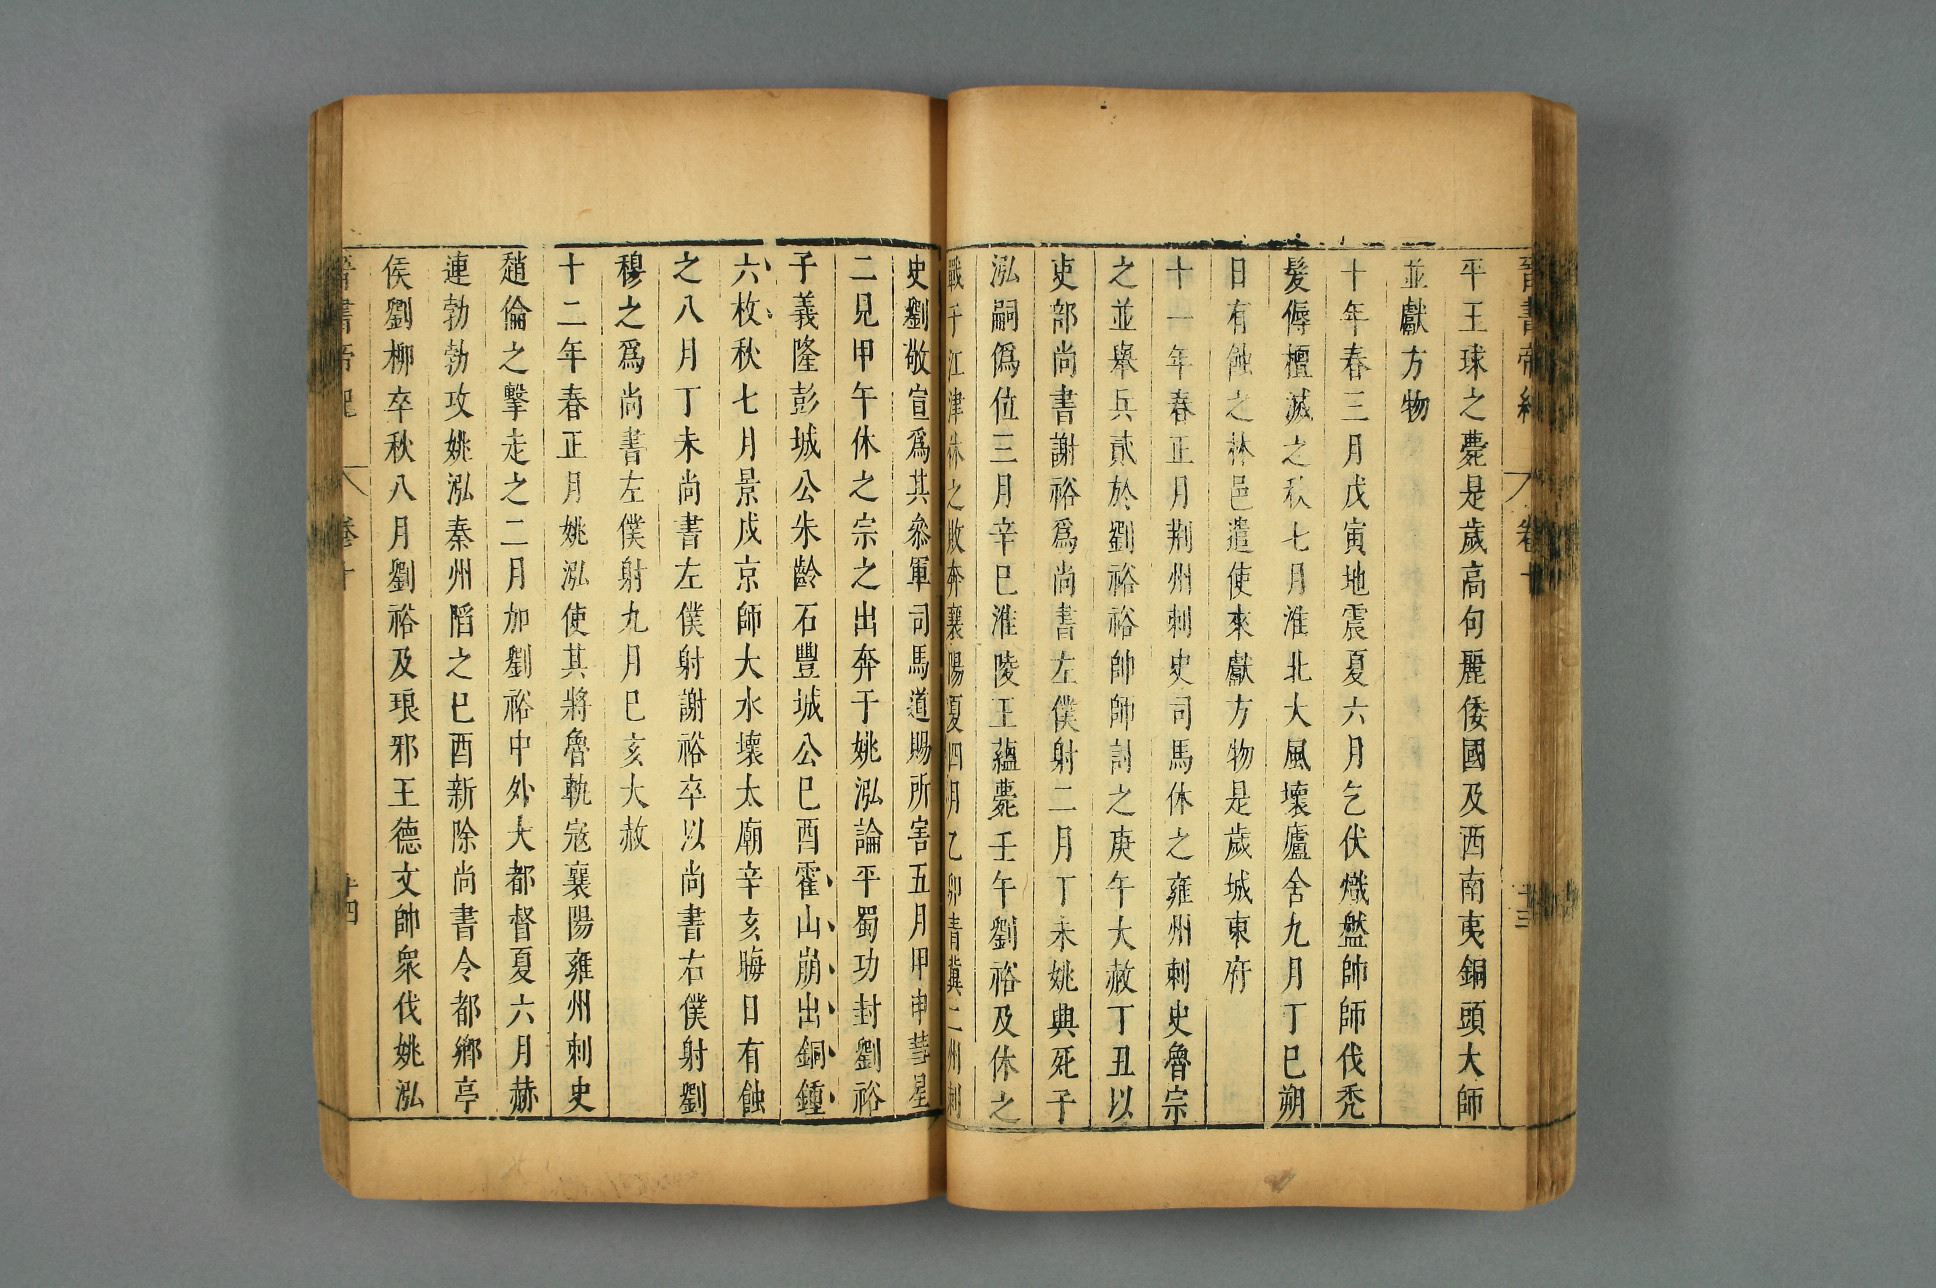 晉書帝紀 卷十 十三
平王球之薨是歲高句麗倭國及西南夷銅頭大師
並獻方物
十年春三月戊寅地震夏六月乞伏熾盤帥師伐禿
髮傉檀滅之秋七月淮北大風壞廬舍九月丁巳朔
日有蝕之林邑遣使來獻方物是歲城東府
十一年春正月荆州刺史司馬休之雍州刺史魯宗
之並舉兵貳於劉裕裕帥師討之庚午大赦丁丑以
吏部尚書謝裕爲尚書左僕射二月丁未姚興死子
泓嗣僞位三月辛巳淮陵王蘊薨壬午劉裕及休之
戰于江津休之敗奔襄陽夏四月乙卯青冀二州刺
史劉敬宣爲其叅軍司馬道賜所害五月甲申彗星
二見甲午休之宗之出奔于姚泓論平蜀功封劉裕
子義隆彭城公朱齡石豐城公巳酉霍山崩出銅鍾
六枚秋七月景戌京師大水壞太廟辛亥晦日有蝕
之八月丁未尚書左僕射謝裕卒以尚書右僕射劉
穆之爲尚書左僕射九月巳亥大赦
十二年春正月姚泓使其將魯軌寇襄陽雍州刺史
趙倫之擊走之二月加劉裕中外大都督夏六月赫
連勃勃攻姚泓秦州䧟之巳酉新除尚書令都鄉亭
侯劉柳卒秋八月劉裕及琅邪王德文帥衆伐姚泓
晉書帝紀 卷十 十四